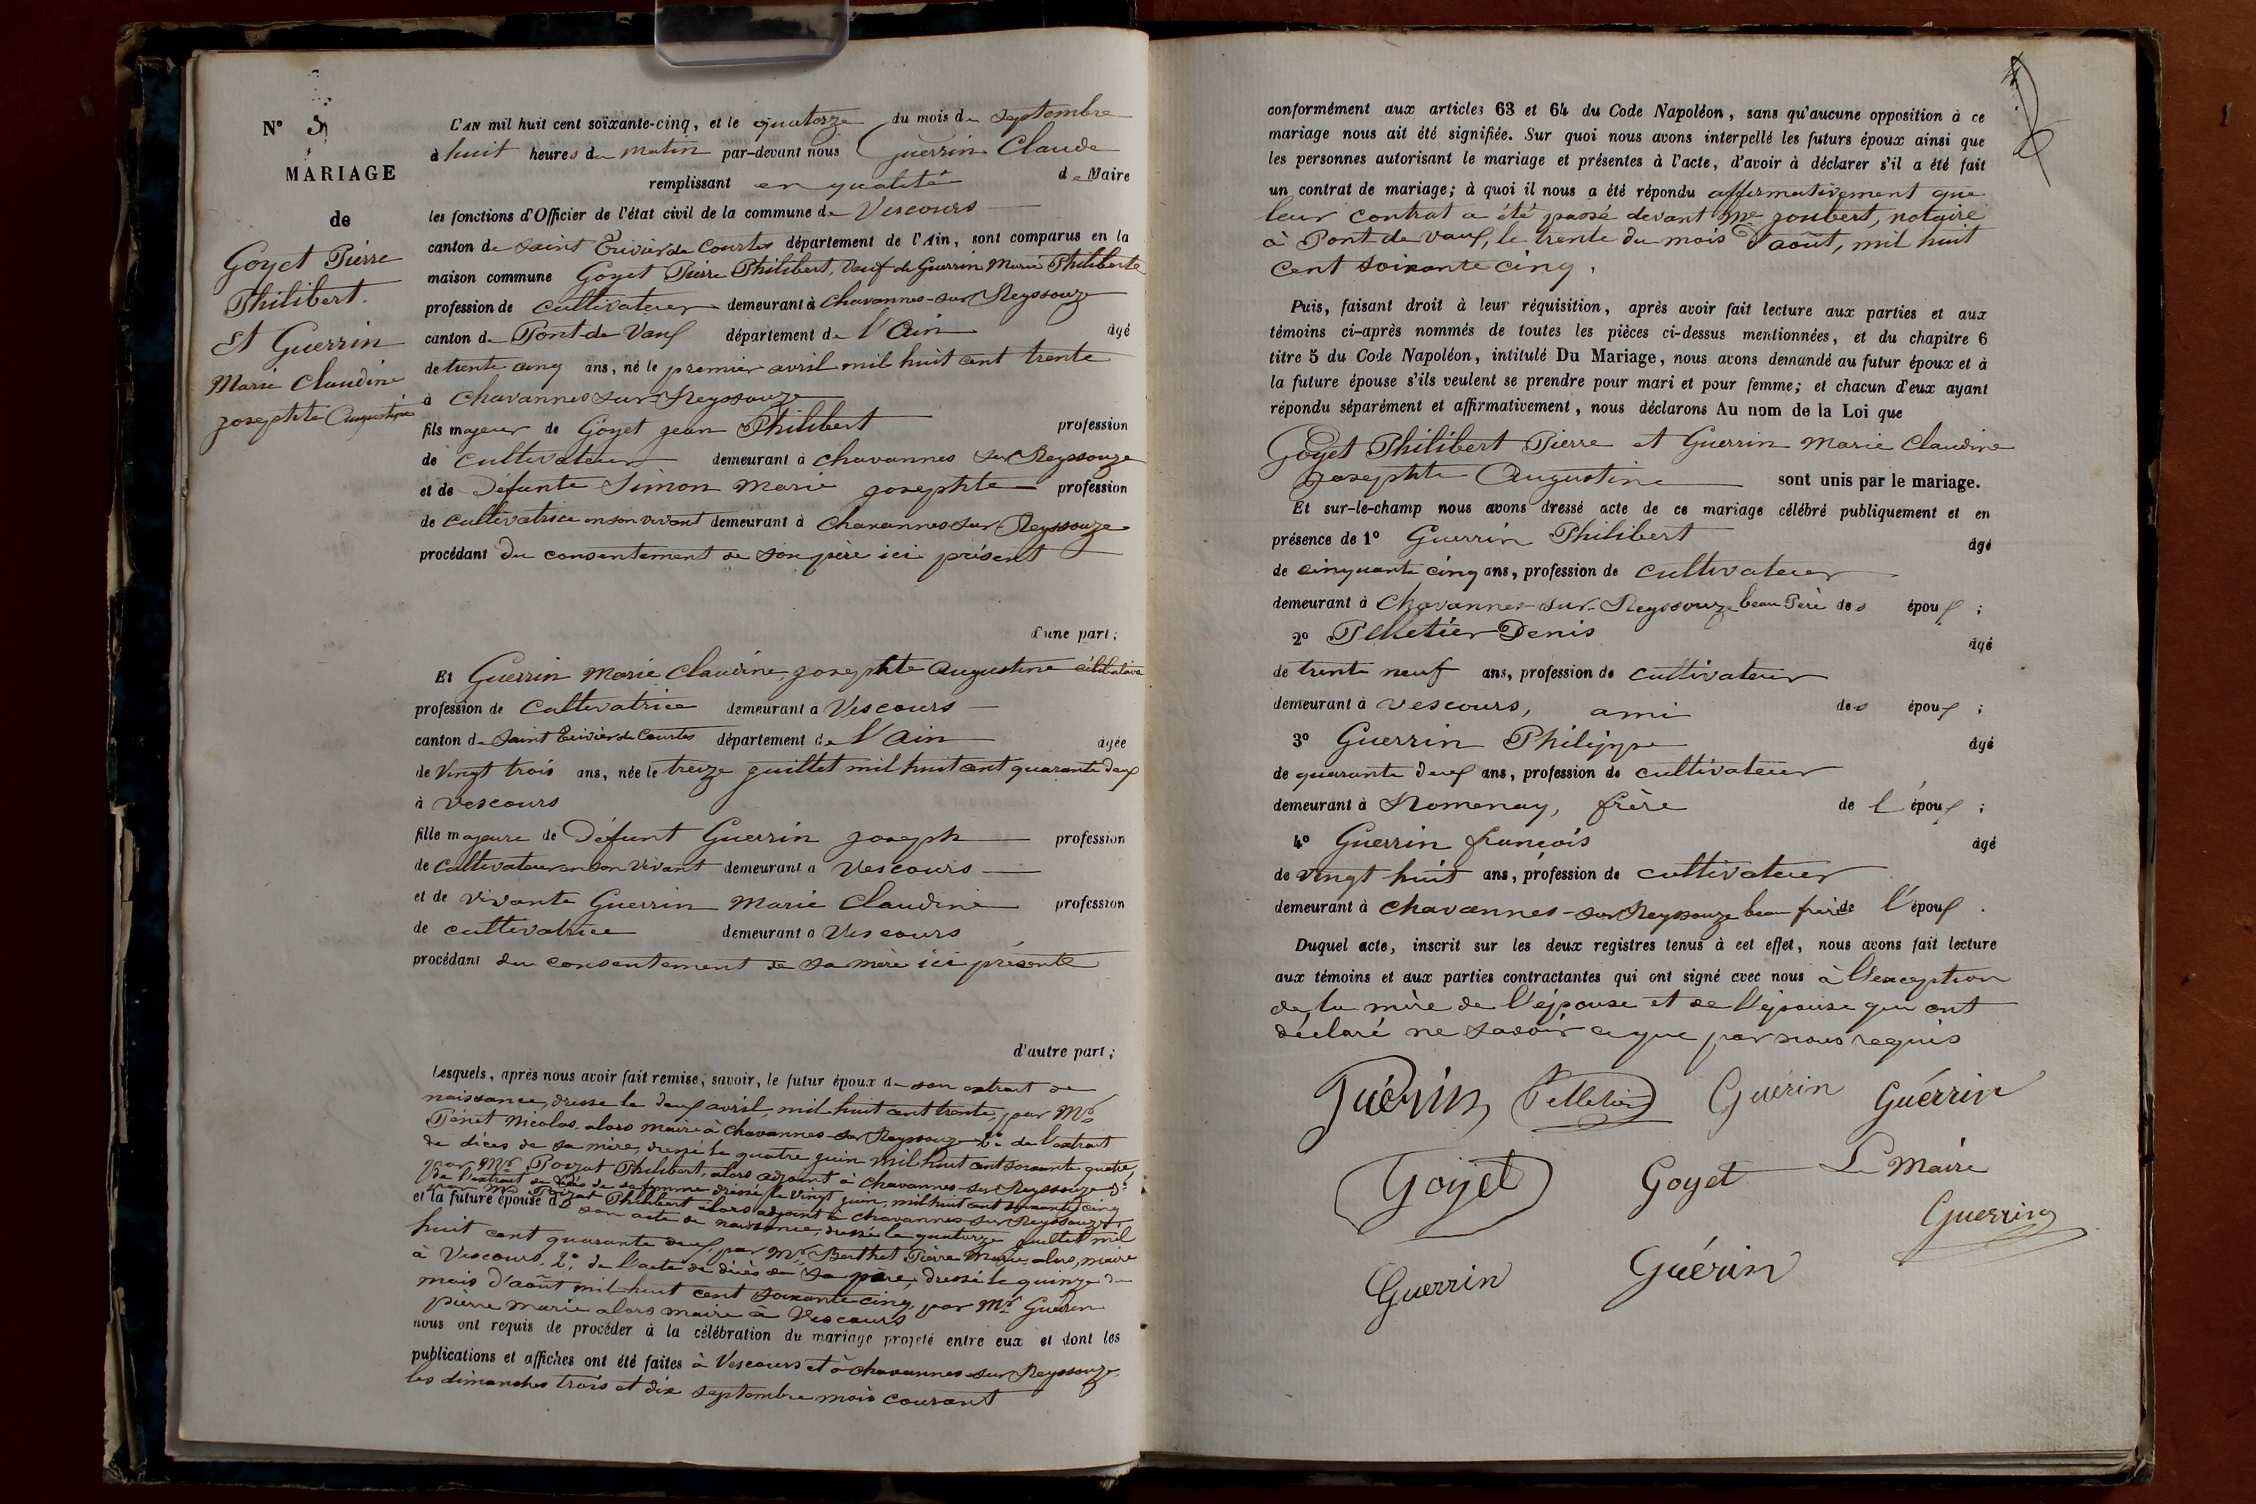 N° 5
MARIAGE
de
Goyet Pierre
Philibert.
Et Guerrin
Marie Claudine
Josephte Augustine
L'AN mil huit cent soixante-cinq, et le quatorze du mois de septembre
à huit heures du matin par-devant nous Guerrin Claude
remplissant en qualité de Maire
les fonctions d'Officier de l'état civil de la commune de Vescours
canton de Saint Trivier de Courtes département de l'Ain, sont comparus en la
maison commune Goyet Pierre Philibert, Veuf de Guerrin Marie Philiberte
profession de cultivateur demeurant à Chavannes-sur-Reyssouze
canton de Pont de Vaux département de l'Ain âgé
de trente cinq ans, né le premier avril mil huit cent trente
à Chavannes sur Reyssouze
fils majeur de Goyet Jean Philibert profession
de cultivateur demeurant à Chavannes sur Reyssouze
et de Défunte Simon Marie Josephte profession
de cultivatrice en son vivant demeurant à Chavannes sur Reyssouze
procédant du consentement de son père ici présent
d'une part;
Et Guerrin Marie Claudine, Josephte Augustine célibataire
profession de Cultivatrice demeurant à Vescours
canton de Saint Trivier de Courtes département de l'Ain âgée
de Vingt trois ans, née le treize juillet mil huit cent quarante deux
à Vescours
fille majeure de Défunt Guerrin Joseph profession
de cultivateur en son vivant demeurant à Vescours
et de vivante Guerrin Marie Claudine profession
de cultivatrice demeurant à Vescours
procédant du consentement de sa mère ici présente
d'autre part;
Lesquels, après nous avoir fait remise, savoir, le futur époux de son extrait de
naissance, dressé le deux avril mil huit cent trente, par Mr
Penet Nicolas alors maire à Chavannes-sur Reyssouze 2°. de l'extrait
de décès de sa mère, dressé le quatre juin mil huit cent soixante quatre,
par Mr Poizat Philibert, alors adjoint à Chavannes-sur Reyssouze 3°
de l'extrait de décès de sa femme dressé le vingt juin, mil huit cent soixante cinq
par Mr Poizat Philibert alors adjoint à Chavannes sur Reyssouze
et la future épouse d son acte de naissance, dressé le quatorze juillet mil
huit cent quarante deux, par Mr Berthet Pierre Marie alors, maire
à Vescours. 2°. de l'acte de décès de sa père, dressé le quinze du
mois d'août mil huit cent soixante cinq par Mr Guérin
pierre marie alors maire à Vescours
nous ont requis de procéder à la célébration du mariage projeté entre eux et dont les
publications et affiches ont été faites à Vescours et à Chavannes-sur Reyssouze
les dimanches trois et dix septembre mois courant
conformément aux articles 63 et 64 du Code Napoléon, sans qu'aucune opposition à ce
mariage nous ait été signifiée. Sur quoi nous avons interpellé les futurs époux ainsi que
les personnes autorisant le mariage et présentes à l'acte, d'avoir à déclarer s'il a été fait
un contrat de mariage; à quoi il nous a été répondu affirmativement que
leur contrat a été passé devant Me Joubert, notaire
à Pont de Vaux, le trente du mois d'août, mil huit
cent soixante cinq.
Puis, faisant droit à leur réquisition, après avoir fait lecture aux parties et aux
témoins ci-après nommés de toutes les pièces ci-dessus mentionnées, et du chapitre 6
titre 5 du Code Napoléon, intitulé Du Mariage, nous avons demandé au futur époux et à
la future épouse s'ils veulent se prendre pour mari et pour femme; et chacun d'eux ayant
répondu séparément et affirmativement, nous déclarons Au nom de la Loi que
Goyet Philibert Pierre et Guerrin Marie Claudine
Josephte Augustine sont unis par le mariage.
Et sur-le-champ nous avons dressé acte de ce mariage célébré publiquement et en
présence de 1° Guerrin Philibert âgé
de cinquante cinq ans, profession de cultivateur
demeurant à Chavannes-sur-Reyssouze beau Père des époux;
2° Pelletier Denis âgé
de trente neuf ans, profession de cultivateur
demeurant à Vescours, ami des époux;
3° Guerrin Philippe âgé
de quarante deux ans, profession de cultivateur
demeurant à Romenay, frère de l'époux;
4° Guerrin françois âgé
de vingt huit ans, profession de cultivateur
demeurant à Chavannes-sur Reyssouze beau frère de l'époux.
Duquel acte, inscrit sur les deux registres tenus à cet effet, nous avons fait lecture
aux témoins et aux parties contractantes qui ont signé avec nous à l'exception
de la mère de l'épouse et de l'épouse qui ont
déclaré ne savoir ce que par nous requis
Guérin Pelletier Guérin Guérrin
Goyet Goyet Le Maire
Guerrin
Guerrin Guérin